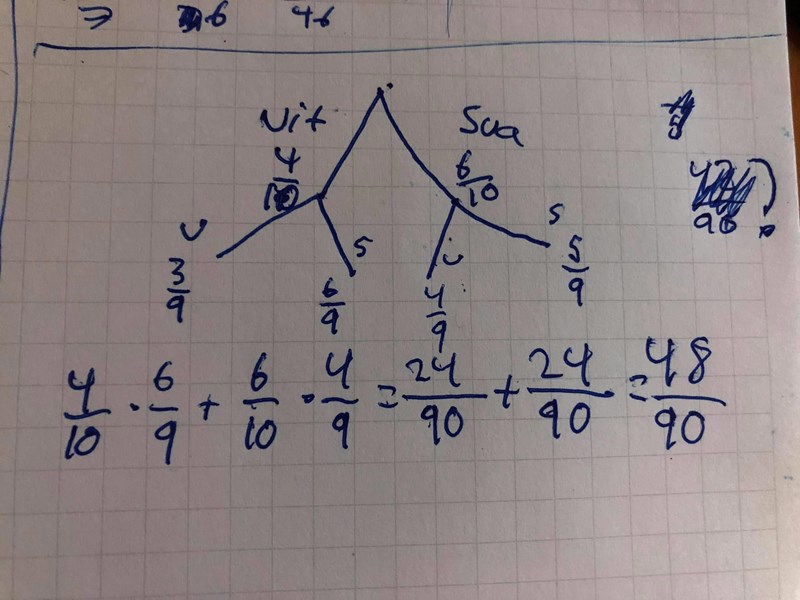 ⇒ 6 46
Vit Sva
4/10 6/10
V S V S
3/9 6/9 4/9 5/9
4/10 · 6/9 + 6/10 · 4/9 = 24/90 + 24/90 = 48/90